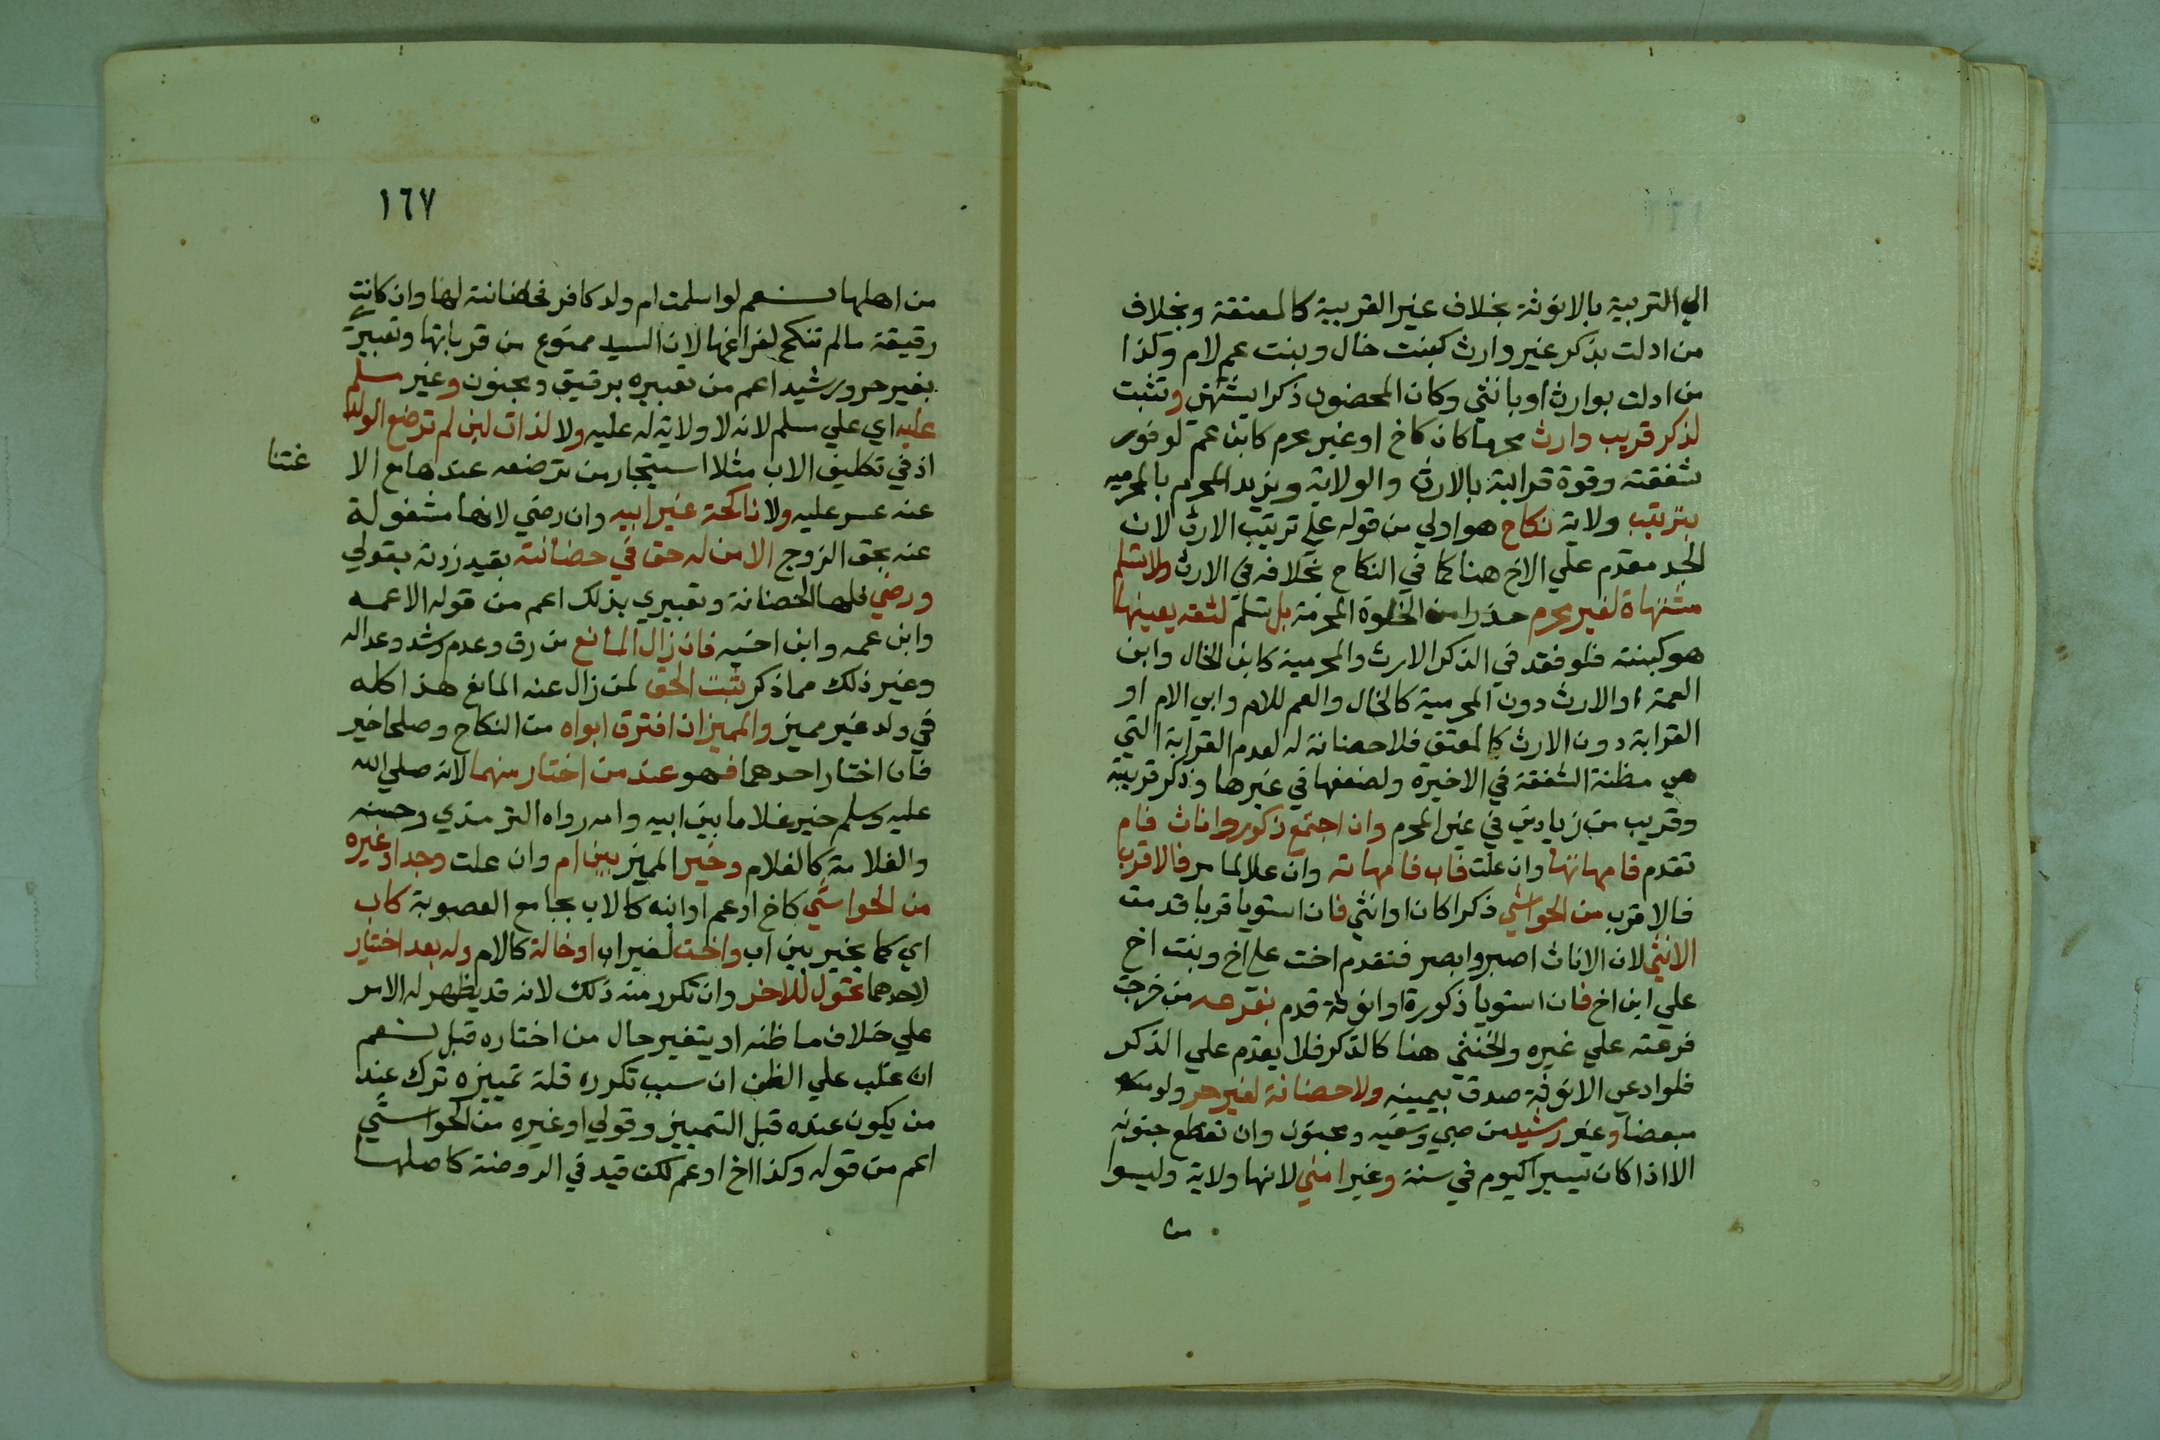 الي التربية بالانوثة بخلاف غير القريبة كالمعتقة وبخلاف
من ادلت بذكر غير وارث كبنت خال وبنت عم لام وكذا
من ادلت بوارث او بانثي وكان المحضون ذكرا يشتهي وتثبت
لذكر قريب وارث محرما كان كاخ او غير محرم كابن عم لوفور
شفقته وقوة قرابته بالارث والولاية ويزيد المحرم بالمحرميه
بترتيب ولاية نكاح هو اولي من قوله علي ترتيب الارث لان
الجد مقدم علي الاخ هنا كما في النكاح بخلافه في الارث ولا تسلم
مشتهاة لغير محرم حذرا من الخلوة المحرمة بل تسلم لثقه يعينها
هو كبنته فلو فقد في الذكر الارث والمحرمية كابن الخال وابن
العمة او الارث دون المحرمية كالخال والعم للام وابي الام او
القرابة دون الارث كالمعتق فلا حضانة له لعدم القرابة التي
هي مظنة الشفقة في الاخيرة ولضعفها في غيرها وذكر قريبة
وقريب من زيادتي في غير المحرم وان اجتمع ذكور واناث فام
تقدم فامهاتها وان علت فاب فامهاته وان علا لما مر فالاقرب
فالاقرب من الحواشي ذكرا كان او انثي فان استويا قربا قدمت
الانثي لان الاناث اصبر وابصر فتقدم اخت علي اخ وبنت اخ
علي ابن اخ فان استويا ذكورة او انوثة قدم بقرعه من خرجت
قرعته علي غيره والخنثي هنا كالذكر فلا يقدم علي الذكر
فلو ادعي الانوثة صدق بيمينه ولا حضانة لغير حر ولو
مبعضا وغير رشيد من صبي وسفيه ومجنون وان تقطع جنونه
الا اذا كان يسيرا كيوم في سنة وغير امين لانها ولاية وليسوا
من
١٦٧
من اهلها نعم لو اسلمت ام ولد كافر فحضانته لها وان كانت
رقيقة ما لم تنكح لفراغها لان السيد ممنوع من قربانها وتعبيري
بغير حر ورشيد اعم من تعبيره برقيق ومجنون وغير مسلم
عليه اي علي مسلم لانه لا ولاية له عليه ولا لذات لبن لم ترضع الولد
اذ في تكليف الاب مثلا استيجار من ترضعه عندها مع الا
غتنا
عنه عسر عليه ولا ناكحة غير ابيه وان رضي لانها مشغولة
عنه بحق الزوج الا من له حق في حضانته بقيد زدته بقولي
ورضي فلها الحضانة وتعبيري بذلك اعم من قوله الا عمه
وابن عمه وابن اخيه فان زال المانع من رق وعدم رشد وعداله
وغير ذلك مما ذكر ثبت الحق لمن زال عنه المانع هذا كله
في ولد غير مميز والمميز ان افترق ابواه من النكاح وصلحا خير
فان اختار احدهما فهو عند من اختار منهما لانه صلي الله
عليه وسلم خير غلاما بين ابيه وامه رواه الترمذي وحسنه
والغلامة كالغلام وخير المميز بين ام وان علت وجد او غيره
من الحواشي كاخ او عم او ابنه كالاب بجامع العصوبة كاب
اي كما يخير بين اب واخت لغير اب او خالة كالام وله بعد اختيار
لاحدهما تحول للاخر وان تكرر منه ذلك لانه قد يظهر له الامر
علي خلاف ما ظنه او يتغير حال من اختاره قبل نعم
ان غلب علي الظن ان سبب تكرره قلة تمييزه ترك عند
من يكون عنده قبل التمييز وقولي او غيره من الحواشي
اعم من قوله وكذا اخ او عم لكن قيد في الروضة كاصلها